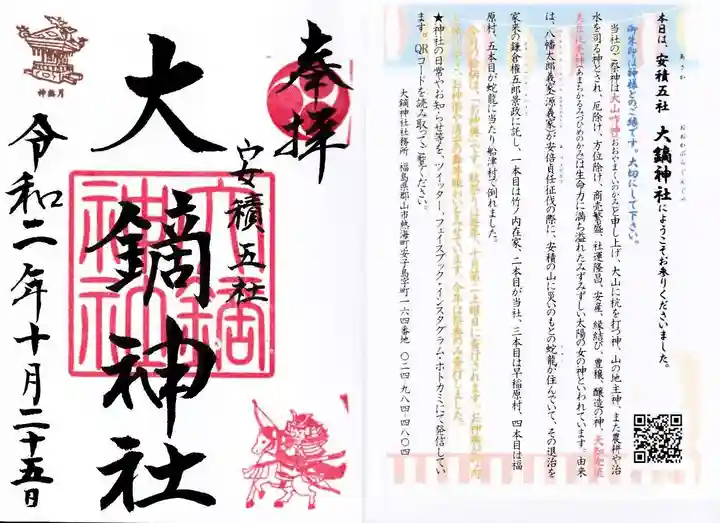 奉拝
安積五社
大鏑神社
大鏑神社
令和二年十月二十五日
神無月
本日は、安積五社 大鏑神社にようこそお参りくださいました。
あさか おおかぶらじんじゃ
御朱印は神様とのご縁です。大切にして下さい。
当社のご祭神は大山咋神(おおやまくいのかみ)と申し上げ、大山に杭を打つ神、山の地主神、また農耕や治
水を司る神とされ、厄除け、方位除け、商売繁盛、社運隆昌、安産、縁結び、豊穣、醸造の神、
(あまちかるみづひめのかみ)は生命力に満ち溢れたみずみずしい太陽の女の神といわれています。由来
は、八幡太郎義家(源義家)が安倍貞任征伐の際に、安積の山に災いのもとの蛇龍が住んでいて、その退治を
家来の鎌倉権五郎景政に託し、一本目は竹ノ内在家、二本目が当社、三本目は早稲原村、四本目は福
原村、五本目が蛇龍に当たり船津村で倒れました。
十月第一土曜日に斎行されます。
★神社の日常やお知らせ等を、ツイッター、フェイスブック・インスタグラム・ホトカミにて発信してい
ます。QRコードを読み取ってご覧ください。
大鏑神社社務所 福島県郡山市熱海町安子島字町一六四番地 〇二四-九八四-四八〇四